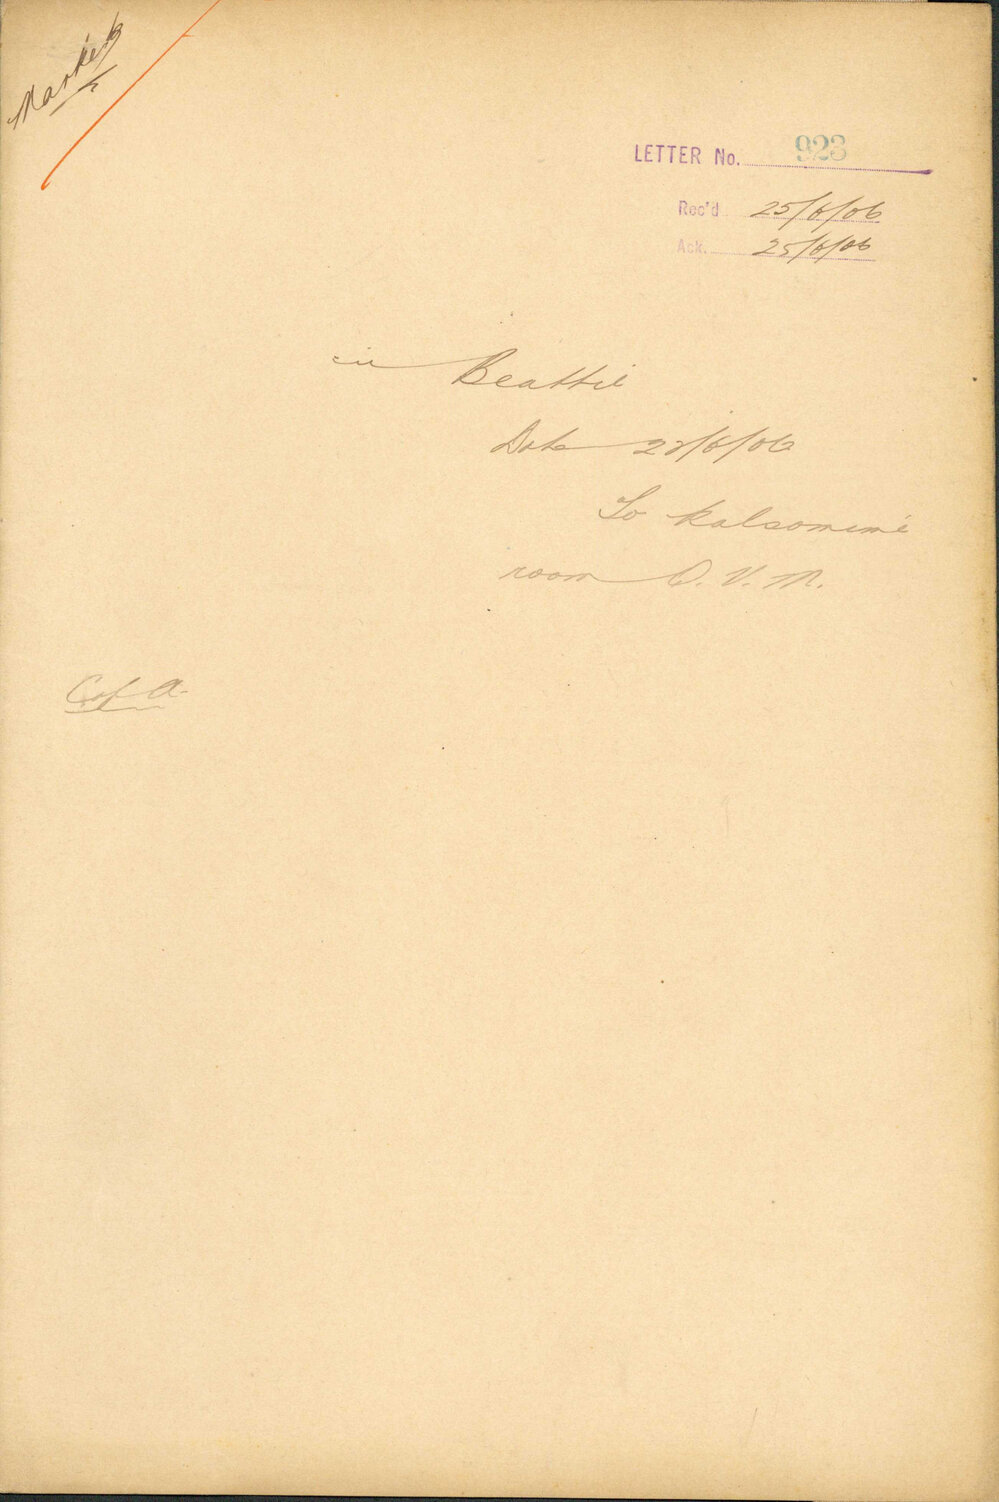 Markets
LETTER No. 923
Rec'd 25/6/06
Ack. 25/6/06
Beattie
Date 22/6/06
To kalsomine
room Q. V. M.
C of A.